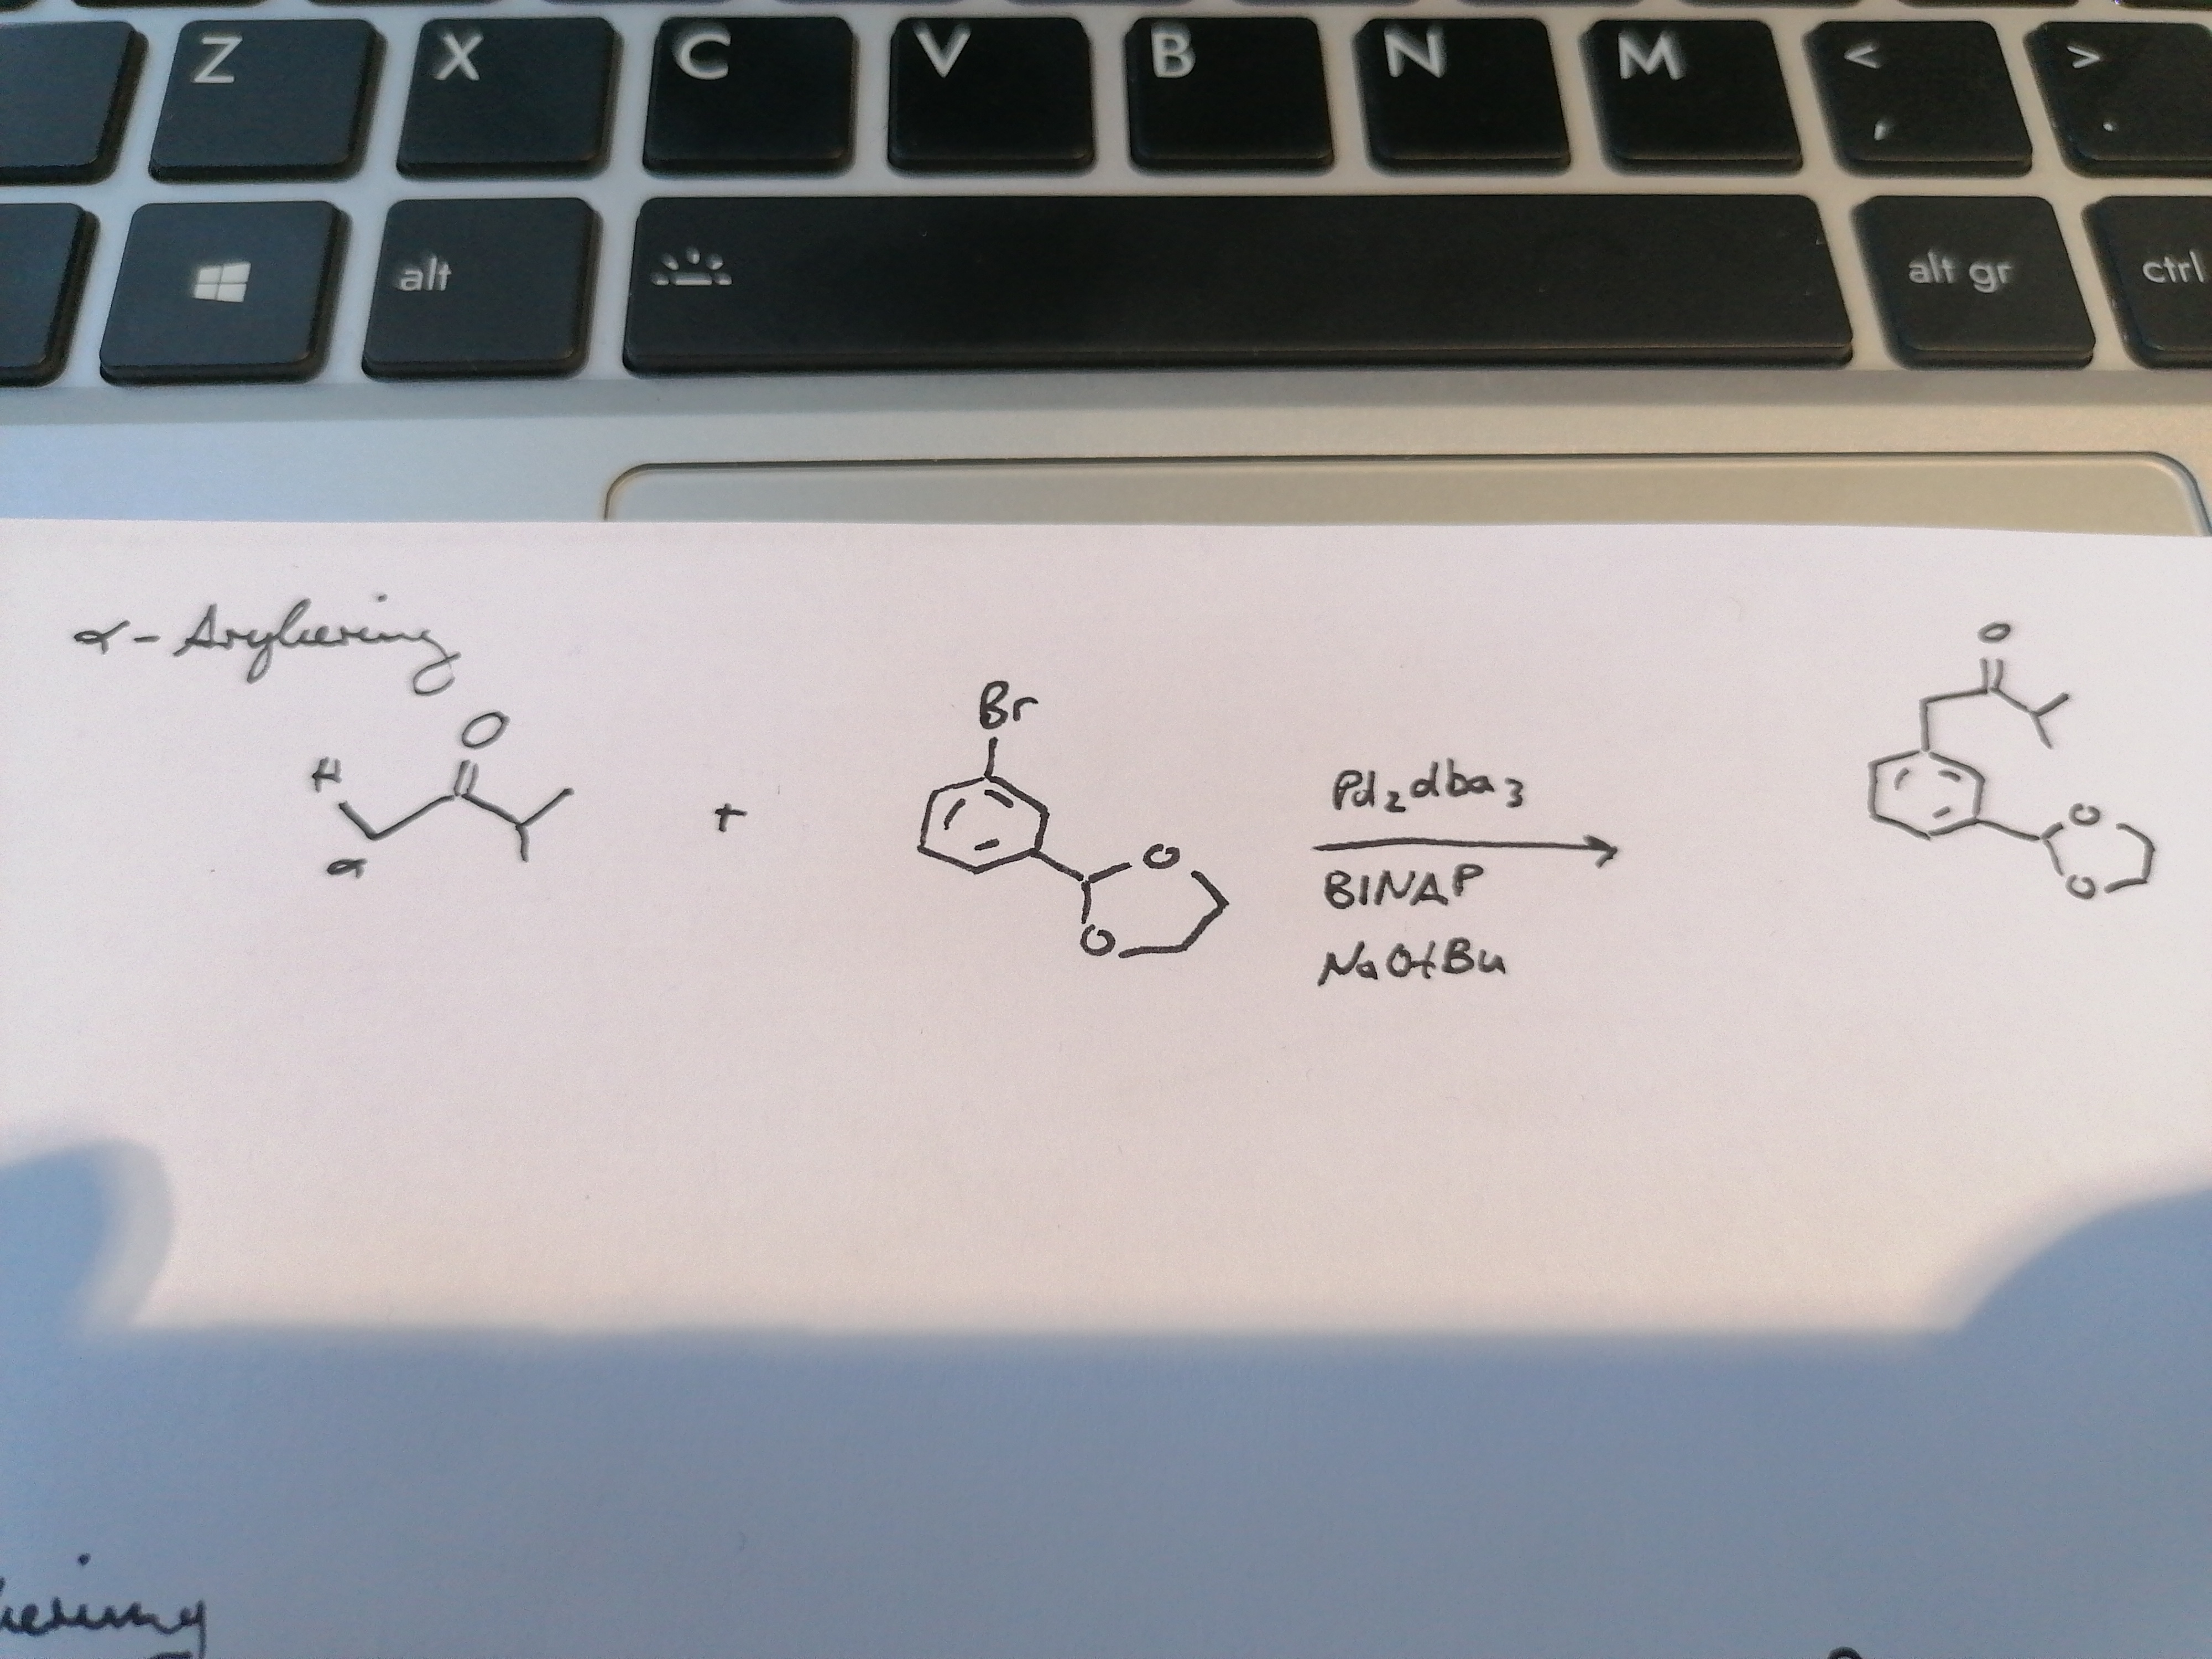 Z X C V B N M < ,  > .
alt alt gr ctrl
α-Arylierung
H O
α
+
Br
O
O
Pd₂dba₃
BINAP
NaOtBu
O
O
O